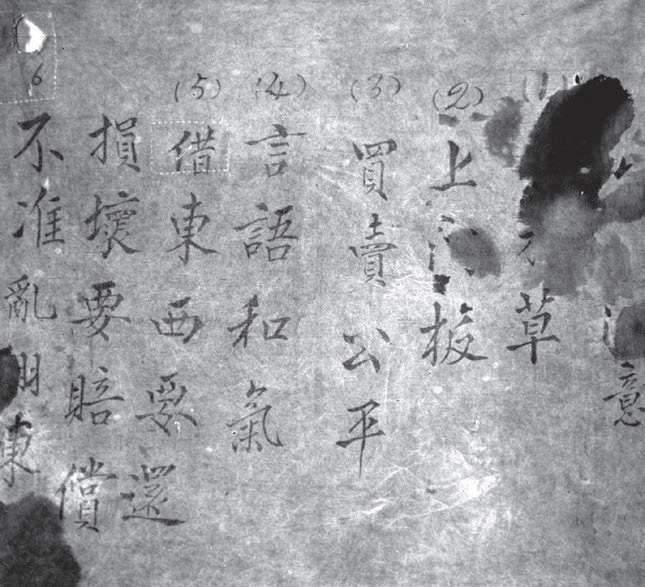 意
(1) 草
(2) 上门板
(3) 買賣公平
(4) 言語和氣
(5) 借東西要還
損壞要賠償
6 不准亂用東